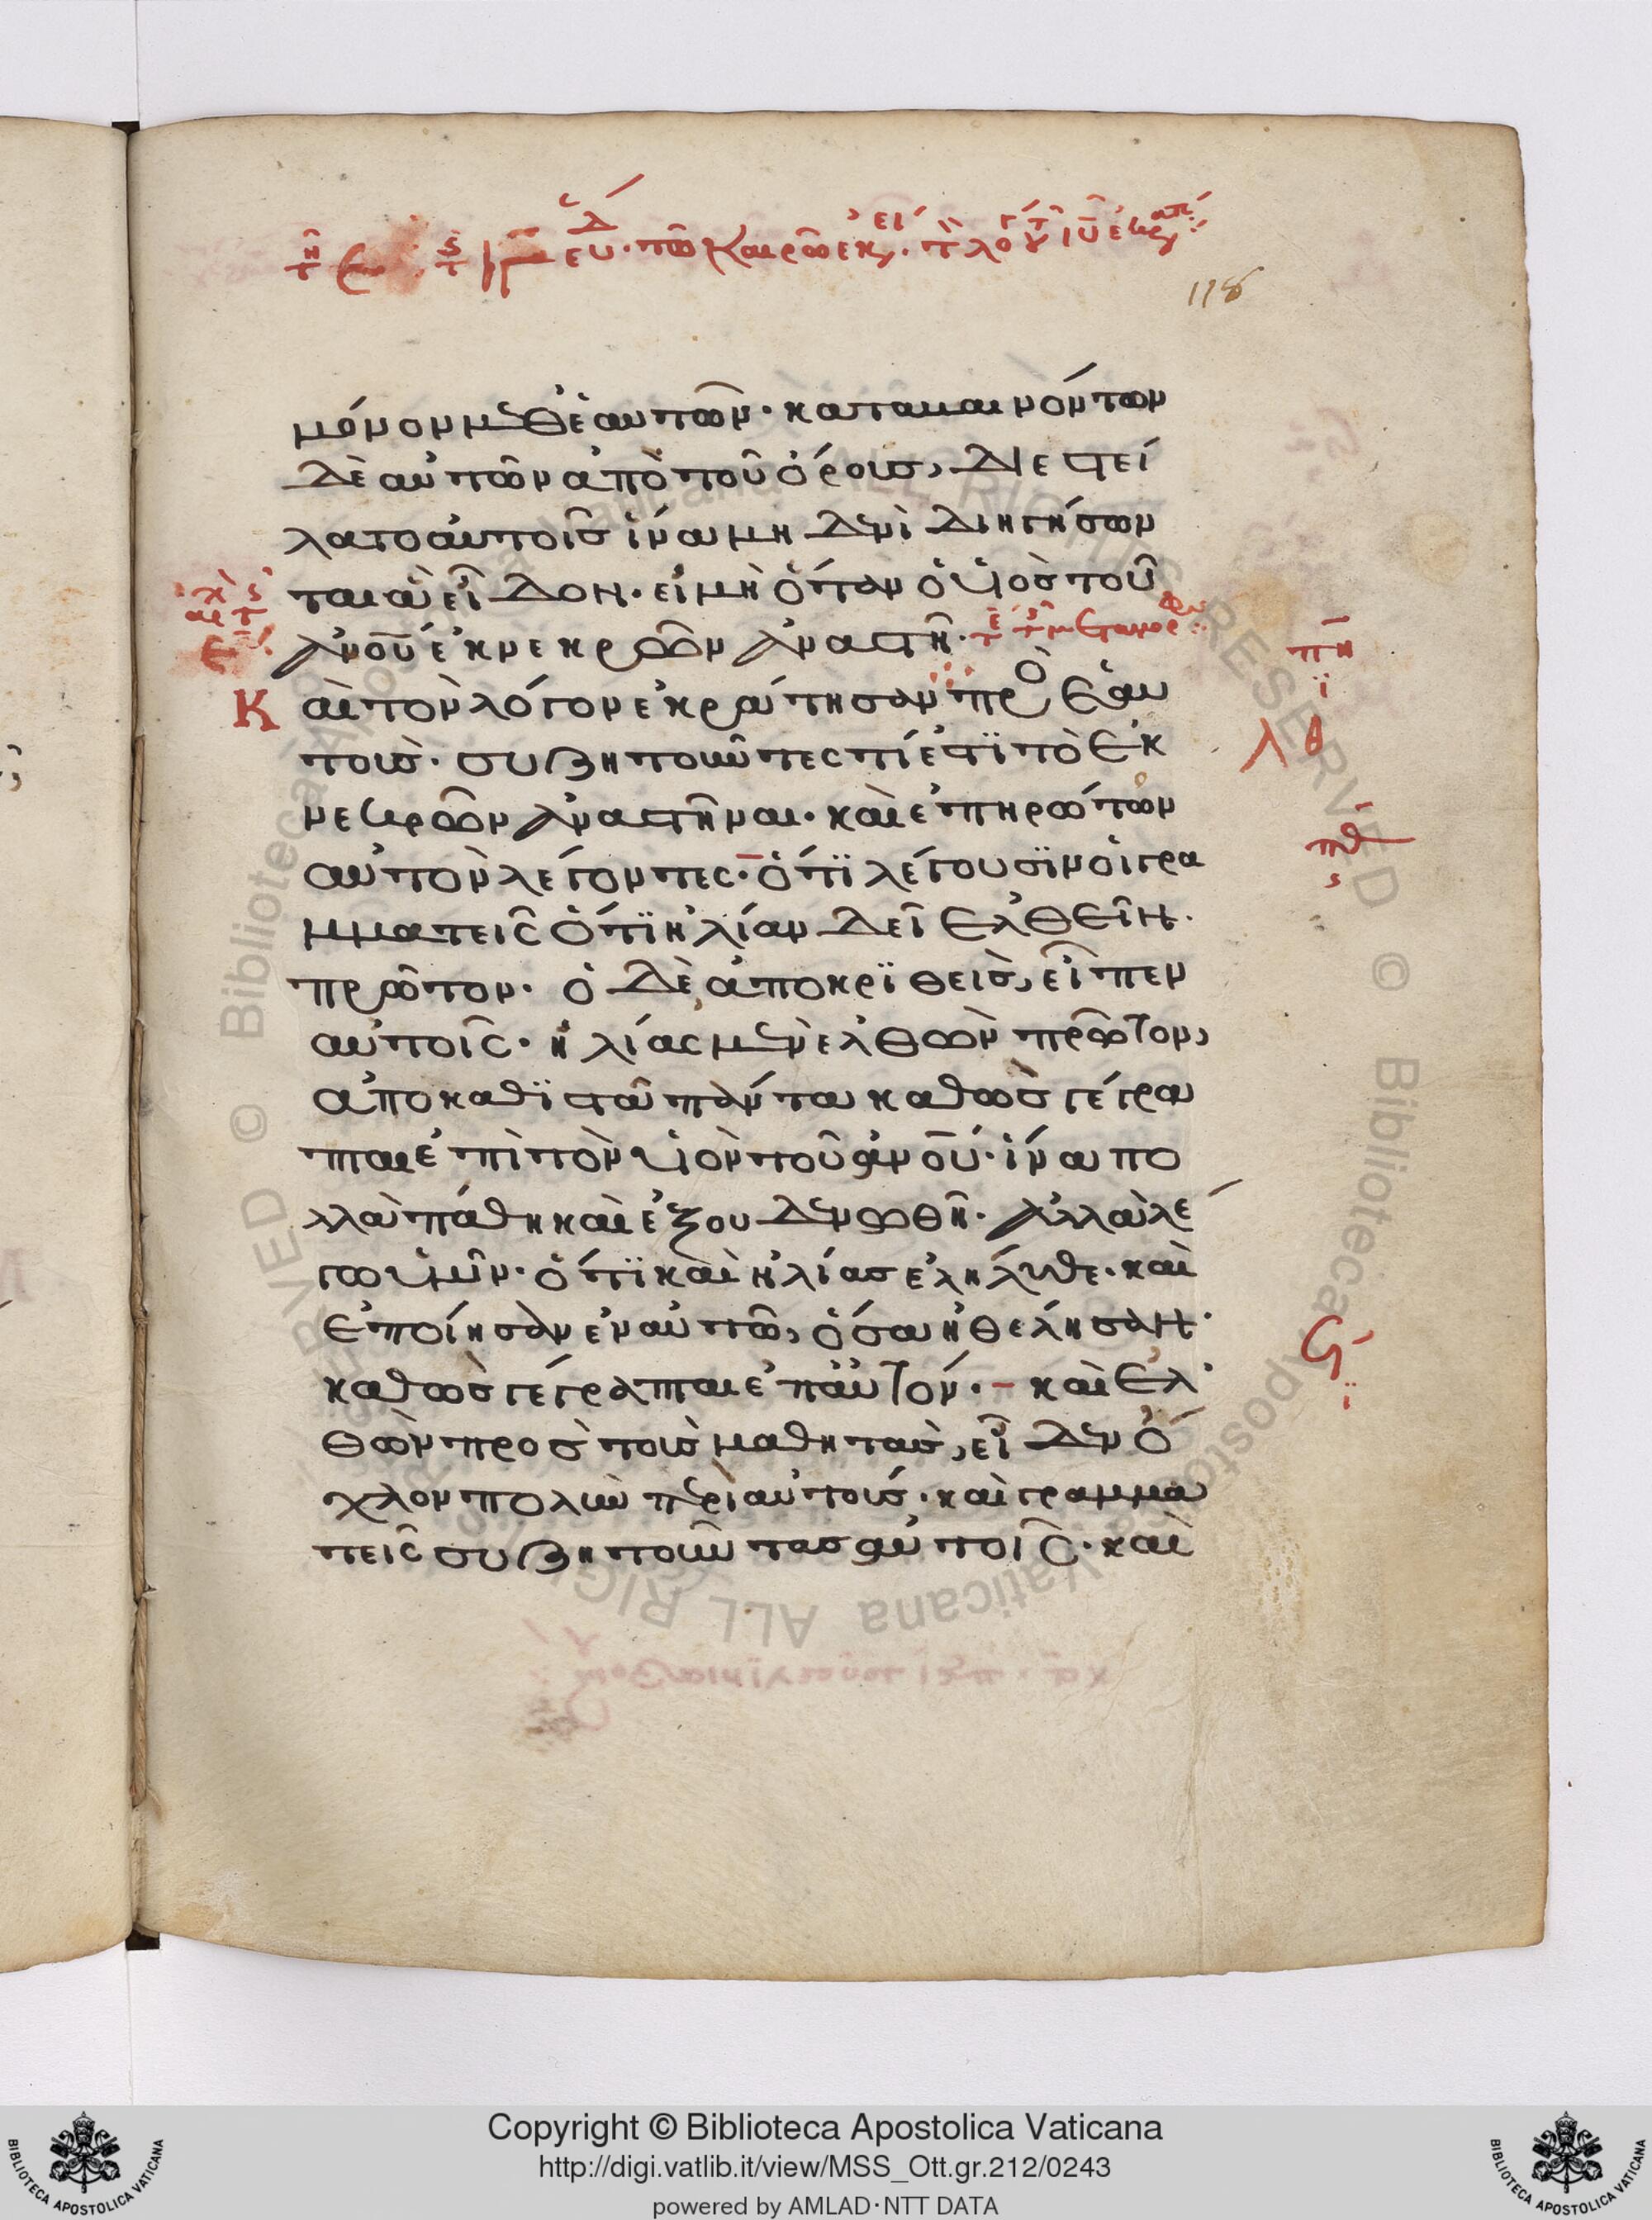 118
μόνον μεθ ἑαυτῶν· καταβαινόντων
δὲ αὐτῶν ἀπὸ τοῦ ὄρους, διεστεί
λατο αὐτοῖς ἵνα μηδενὶ διηγήσων
ται ἃ εἶδον· εἰ μὴ ὅταν ὁ υἱὸς τοῦ
ἀνου ἐκ νεκρῶν ἀναστῆ·
Καὶ τὸν λόγον ἐκράτησαν πρὸ ἑαυ
τους· συζητοῦντες τί ἐστϊ τὸ ἐκ
νεκρῶν ἀναστῆναι· καὶ ἐπηρώτων
αὐτὸν λέγοντες· ὅτϊ λέγουσϊν οἱ γρα
μματεῖς ὅτϊ ἠλίαν δεῖ ἐλθεῖν·
πρῶτον· ὁ δὲ ἀποκρϊθεὶς, εἶπεν
αὐτοῖς· ἠλίας μὲν ἐλθὼν πρῶτον,
ἀποκαθϊστᾶ πάντα καθὼς γέγρα
πται ἐπὶ τὸν υἱὸν τοῦ ἀνου· ἵνα πο
λλὰ πάθη καὶ ἐξουδενωθῆ· ἀλλὰ λέ
γω ὑμῖν· ὅτϊ καὶ ἠλίας ἐλήλυθε· καὶ
ἐποίησαν ἐν αὐτῶ, ὅσα ἠθέλησαν·
καθὼς γέγραπται ἐπ αὐτόν· καὶ ἐλ
θὼν προς τοὺς μαθητὰς, εἶδεν ὄ
χλον πολὺν περὶ αὐτούς· καὶ γραμμα
τεῖς συζητοῦντας αὐτοῖς· καὶ
πη
ϊ
λθ
πθ
ς
ϛ
ϊ
Copyright © Biblioteca Apostolica Vaticana
http://digi.vatlib.it/view/MSS_Ott.gr.212/0243
powered by AMLAD·NTT DATA
BIBLIOTECA APOSTOLICA VATICANA
BIBLIOTECA APOSTOLICA VATICANA